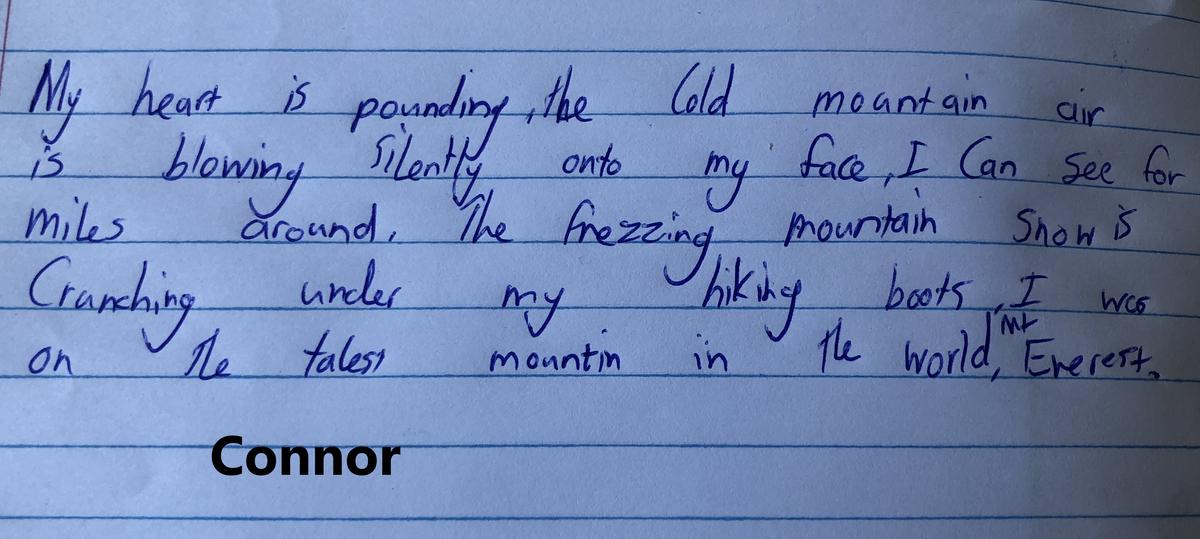 My heart is pounding, the Cold mountain air
is blowing Silently onto my face, I Can See for
miles around. The frezzing mountain Snow is
Cranching under my hiking boots, I was
on the taless mountin in the world, Mt Everest.
Connor